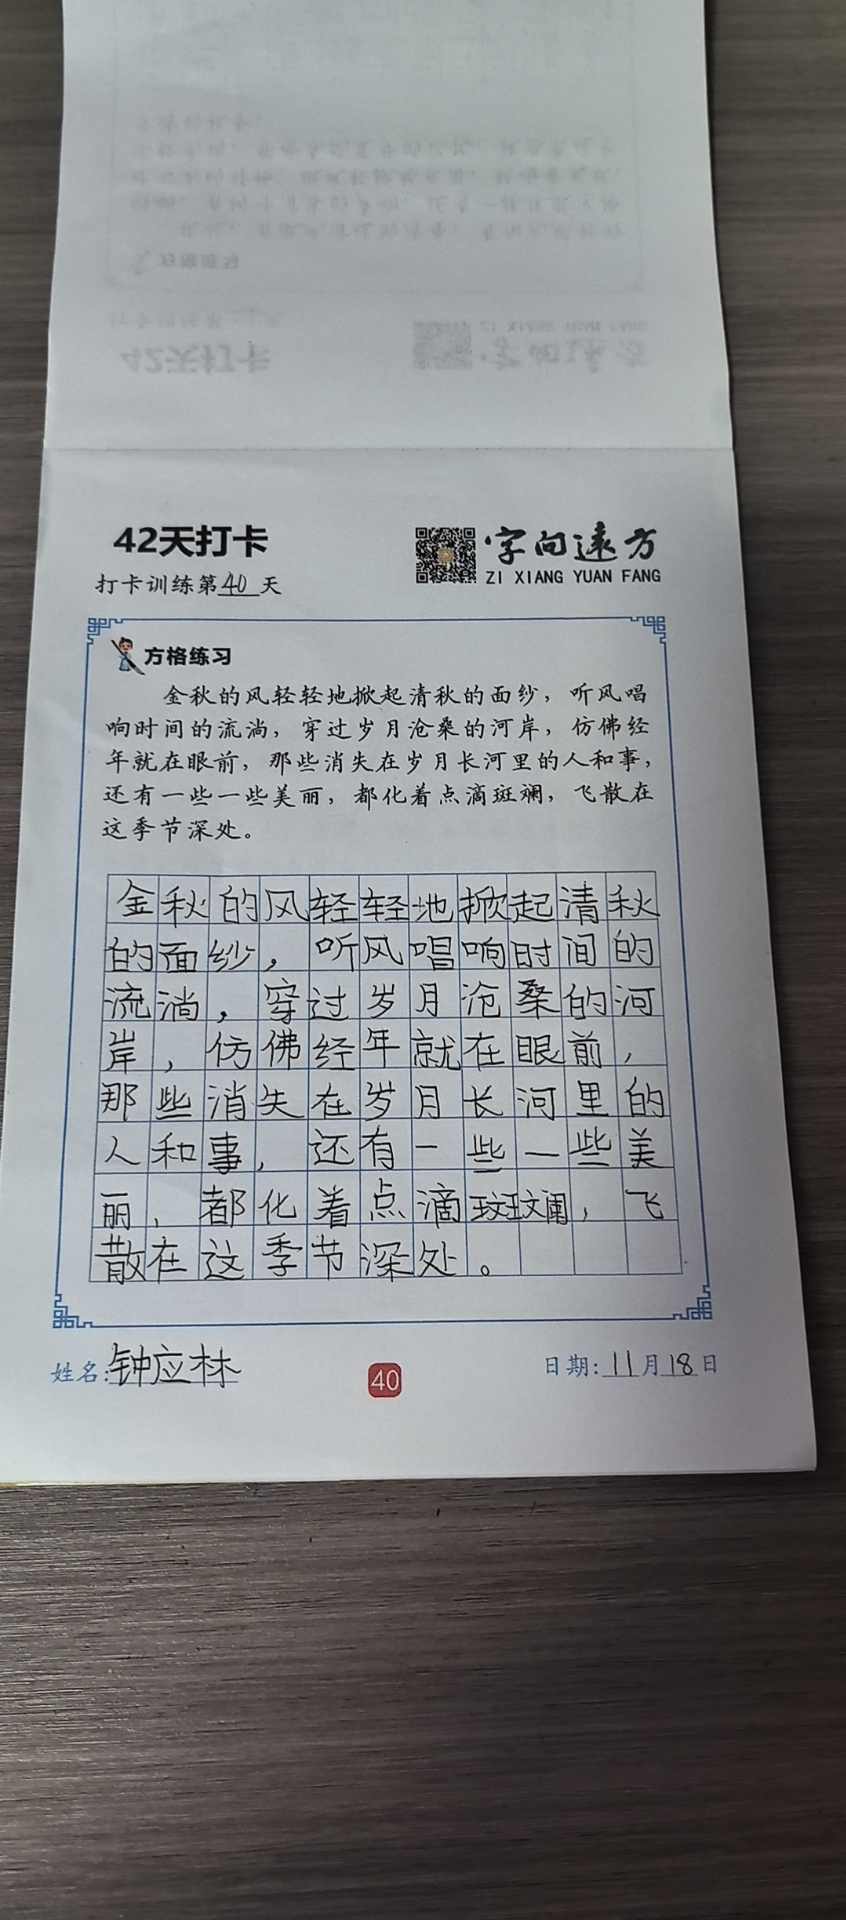 42天打卡
字向远方
ZI XIANG YUAN FANG
打卡训练第40天
方格练习
金秋的风轻轻地掀起清秋的面纱，听风唱
响时间的流淌，穿过岁月沧桑的河岸，仿佛经
年就在眼前，那些消失在岁月长河里的人和事，
还有一些一些美丽，都化着点滴斑斓，飞散在
这季节深处。
金秋的风轻轻地掀起清秋
的面纱，听风唱响时间的
流淌，穿过岁月沧桑的河
岸，仿佛经年就在眼前，
那些消失在岁月长河里的
人和事，还有一些一些美
丽，都化着点滴斑斓，飞
散在这季节深处。
姓名:钟应林
40
日期:11月18日